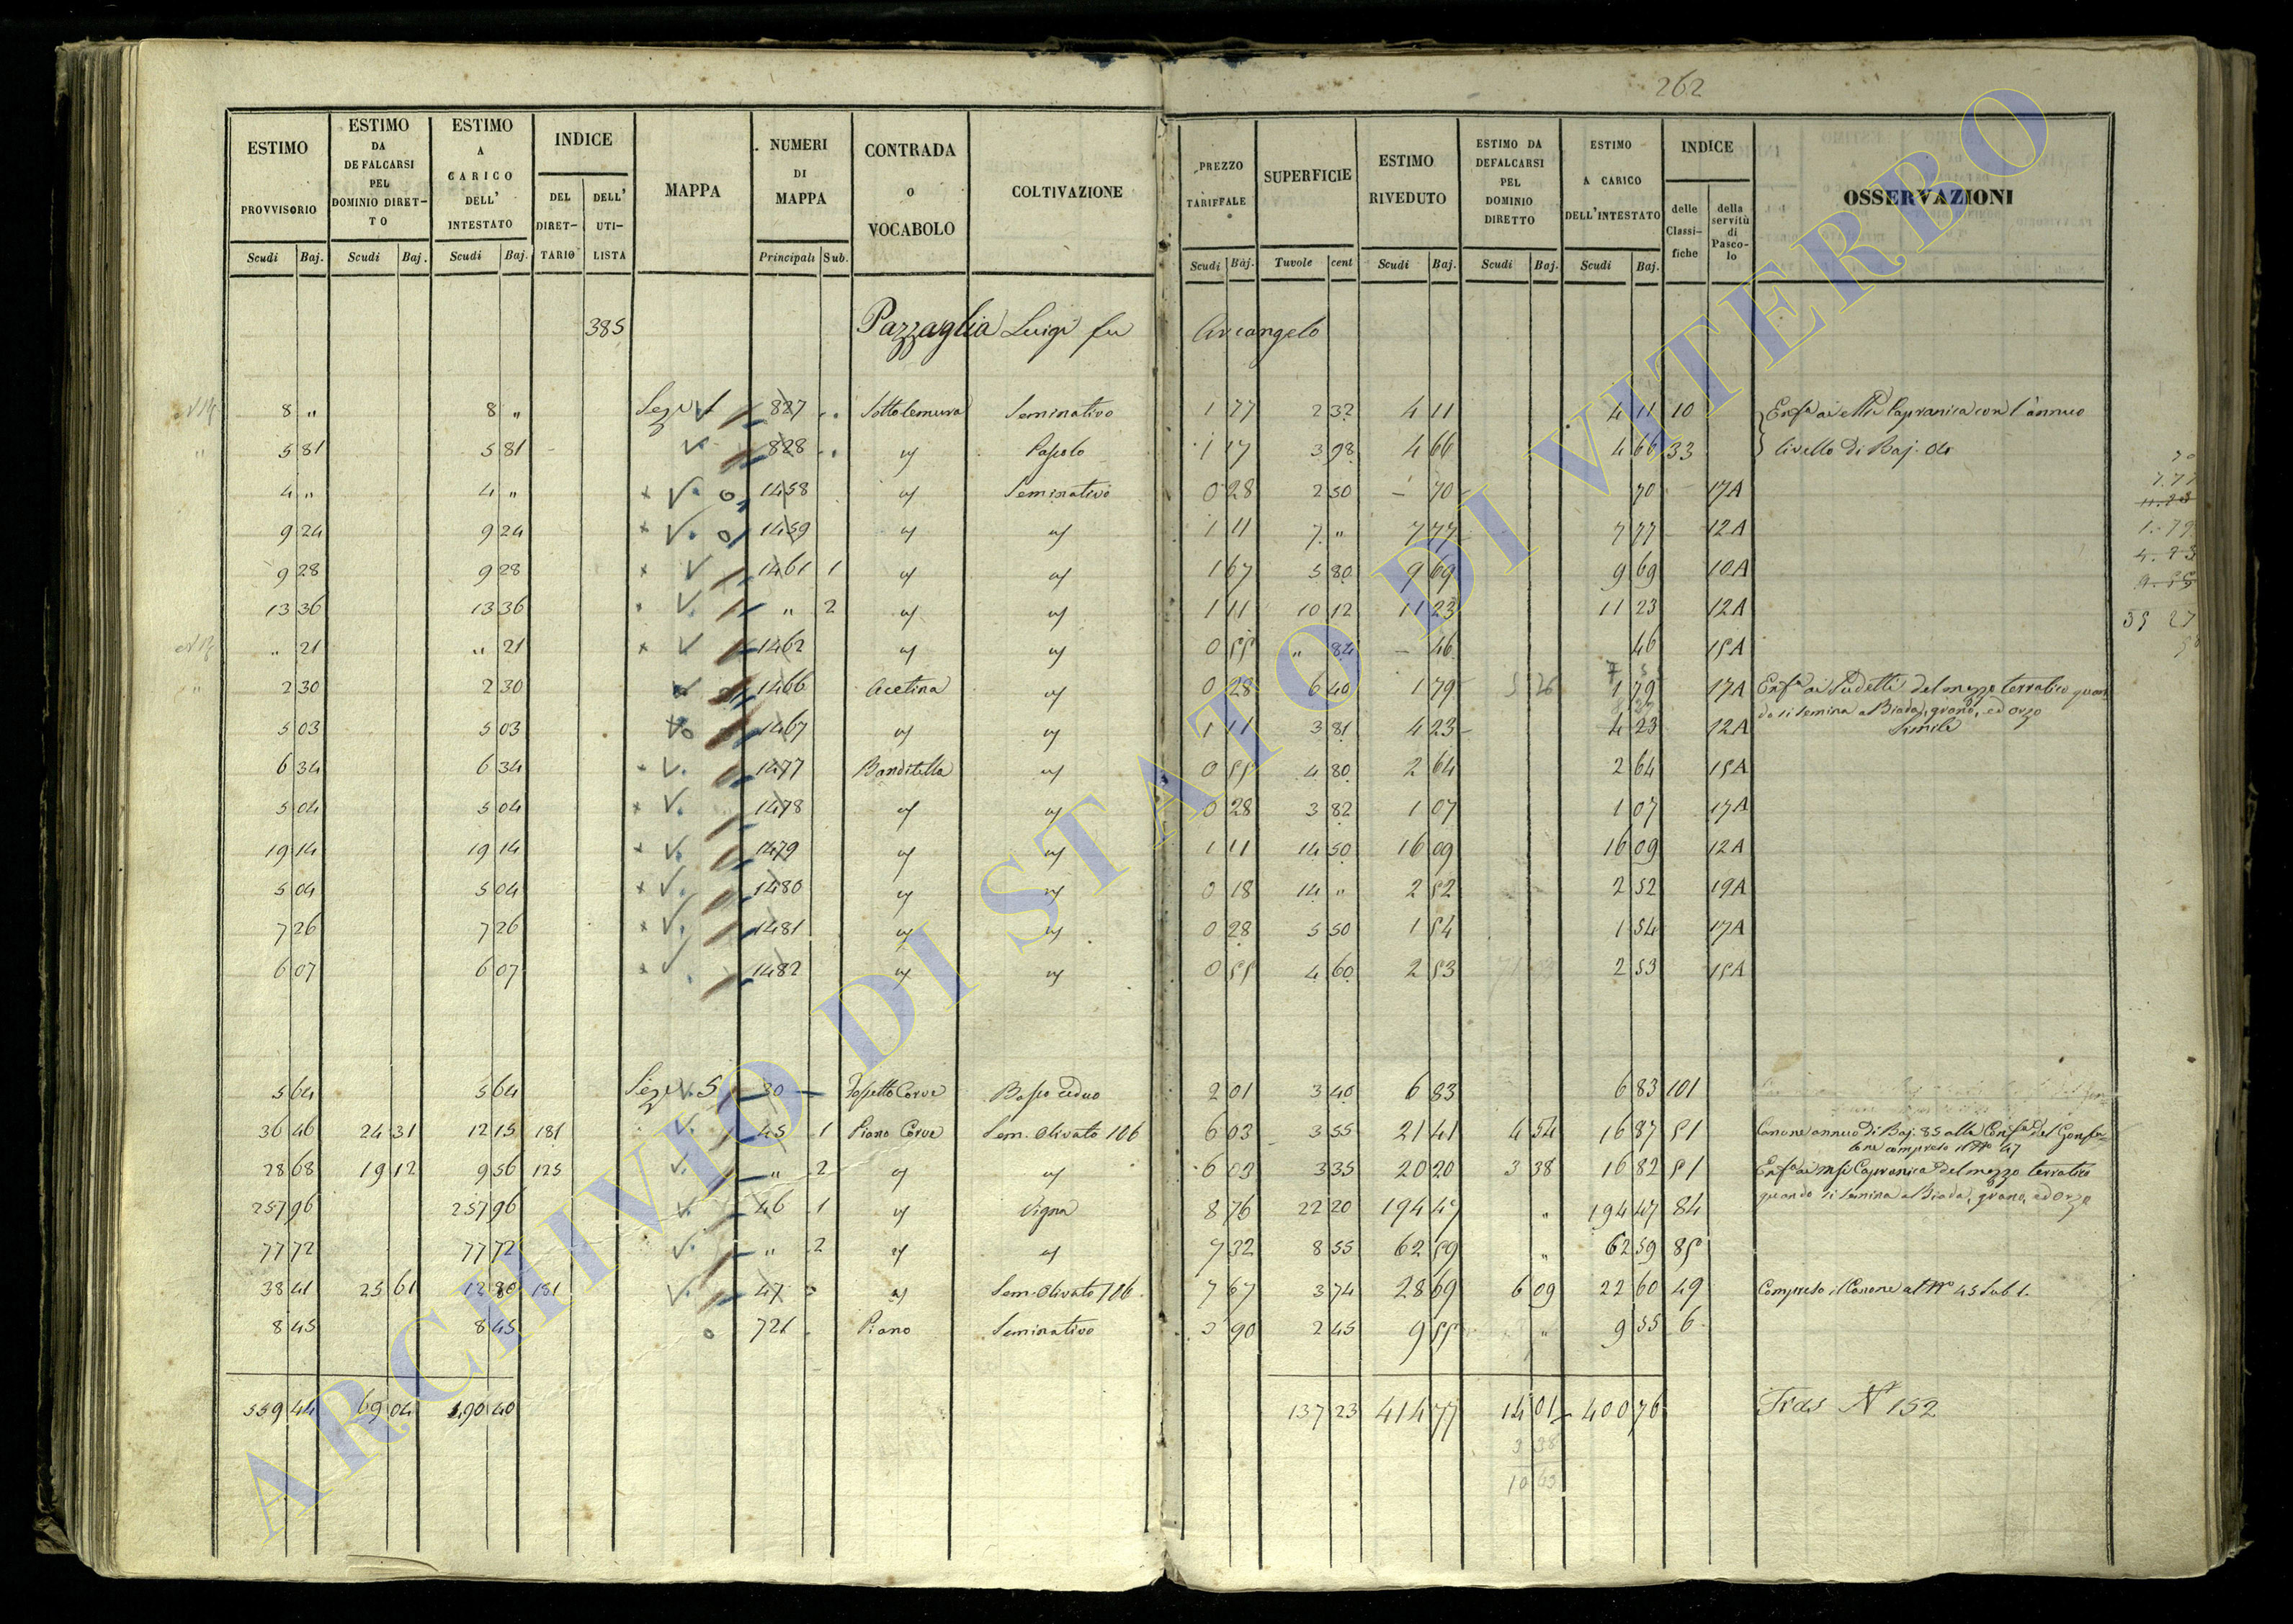 262
ESTIMO PROVVISORIO | ESTIMO DA DEFALCARSI PEL DOMINIO DIRETTO | ESTIMO A CARICO DELL' INTESTATO | INDICE DEL DIRETTARIO | DELL' UTILISTA | MAPPA | NUMERI DI MAPPA | CONTRADA O VOCABOLO | COLTIVAZIONE | PREZZO TARIFFALE | SUPERFICIE | ESTIMO RIVEDUTO | ESTIMO DA DEFALCARSI PEL DOMINIO DIRETTO | ESTIMO A CARICO DELL'INTESTATO | INDICE delle Classifiche | della servitù di Pascolo | OSSERVAZIONI
Scudi Baj. | Scudi Baj. | Scudi Baj. | Principali Sub. | Scudi Baj. | Tavole cent | Scudi Baj. | Scudi Baj. | Scudi Baj.
385 Pazzaglia Luigi fu Arcangelo
8 " | 8 " | Sez. 1 | 827 | Sottolemura | Seminativo | 1 77 | 2 32 | 4 11 | 4 11 | 10 | Enfa ai Capranica con l'annuo
5 81 | 5 81 | 828 | Pascolo | 1 17 | 3 98 | 4 66 | 4 66 | 33 | livello di Baj. 04
4 " | 4 " | 1458 | Seminativo | 0 28 | 2 50 | - 70 | 70 | 17A
9 24 | 9 24 | 1459 | 1 11 | 7 " | 7 77 | 7 77 | 12A
9 28 | 9 28 | 1461 | 1 | 1 67 | 5 80 | 9 69 | 9 69 | 10A
13 36 | 13 36 | " | 2 | 1 11 | 10 12 | 11 23 | 11 23 | 12A
" 21 | " 21 | 1462 | 0 55 | " 84 | - 46 | 46 | 15A
2 30 | 2 30 | 1466 | Acetina | 0 28 | 6 40 | 1 79 | 1 79 | 17A | Enfa ai Sudetti del mezzo terratico quan
do si semina a Biada, grano, ed orzo
5 03 | 5 03 | 1467 | 1 11 | 3 81 | 4 23 | 4 23 | 12A | Simile
6 34 | 6 34 | 1477 | Banditella | 0 55 | 4 80 | 2 64 | 2 64 | 15A
5 04 | 5 04 | 1478 | 0 28 | 3 82 | 1 07 | 1 07 | 17A
19 14 | 19 14 | 1479 | 1 11 | 14 50 | 16 09 | 16 09 | 12A
5 04 | 5 04 | 1480 | 0 18 | 14 " | 2 52 | 2 52 | 19A
7 26 | 7 26 | 1481 | 0 28 | 5 50 | 1 54 | 1 54 | 17A
6 07 | 6 07 | 1482 | 0 55 | 4 60 | 2 53 | 2 53 | 15A
5 64 | 5 64 | Sez. 5 | 30 | Fossetto Corve | Bosco ceduo | 2 01 | 3 40 | 6 83 | 6 83 | 101
36 46 | 24 31 | 12 15 | 181 | 45 | 1 | Piano Corve | Sem. Olivato 106 | 6 03 | 3 55 | 21 41 | 4 54 | 16 87 | 51 | Canone annuo di Baj. 85 alla Confa del Gonfa-
lone compreso il No 47
28 68 | 19 12 | 9 56 | 125 | " | 2 | 6 03 | 3 35 | 20 20 | 3 38 | 16 82 | 51 | Enfa ai Capranica del mezzo terratico
quando si semina a Biada, grano, ed orzo
257 96 | 257 96 | 46 | 1 | Vigna | 8 76 | 22 20 | 194 47 | " | 194 47 | 84
77 72 | 77 72 | " | 2 | 7 32 | 8 55 | 62 59 | " | 62 59 | 85
38 41 | 25 61 | 12 80 | 181 | 47 | Sem. Olivato 106 | 7 67 | 3 74 | 28 69 | 6 09 | 22 60 | 49 | Compreso il Canone al No 45 Sub 1.
8 45 | 8 45 | 721 | Piano | Seminativo | 3 90 | 2 45 | 9 55 | " | 9 55 | 6
559 44 | 69 04 | 490 40 | 137 23 | 414 77 | 14 01 | 400 76 | No 152
3 38
10 63
ARCHIVIO DI STATO DI VITERBO